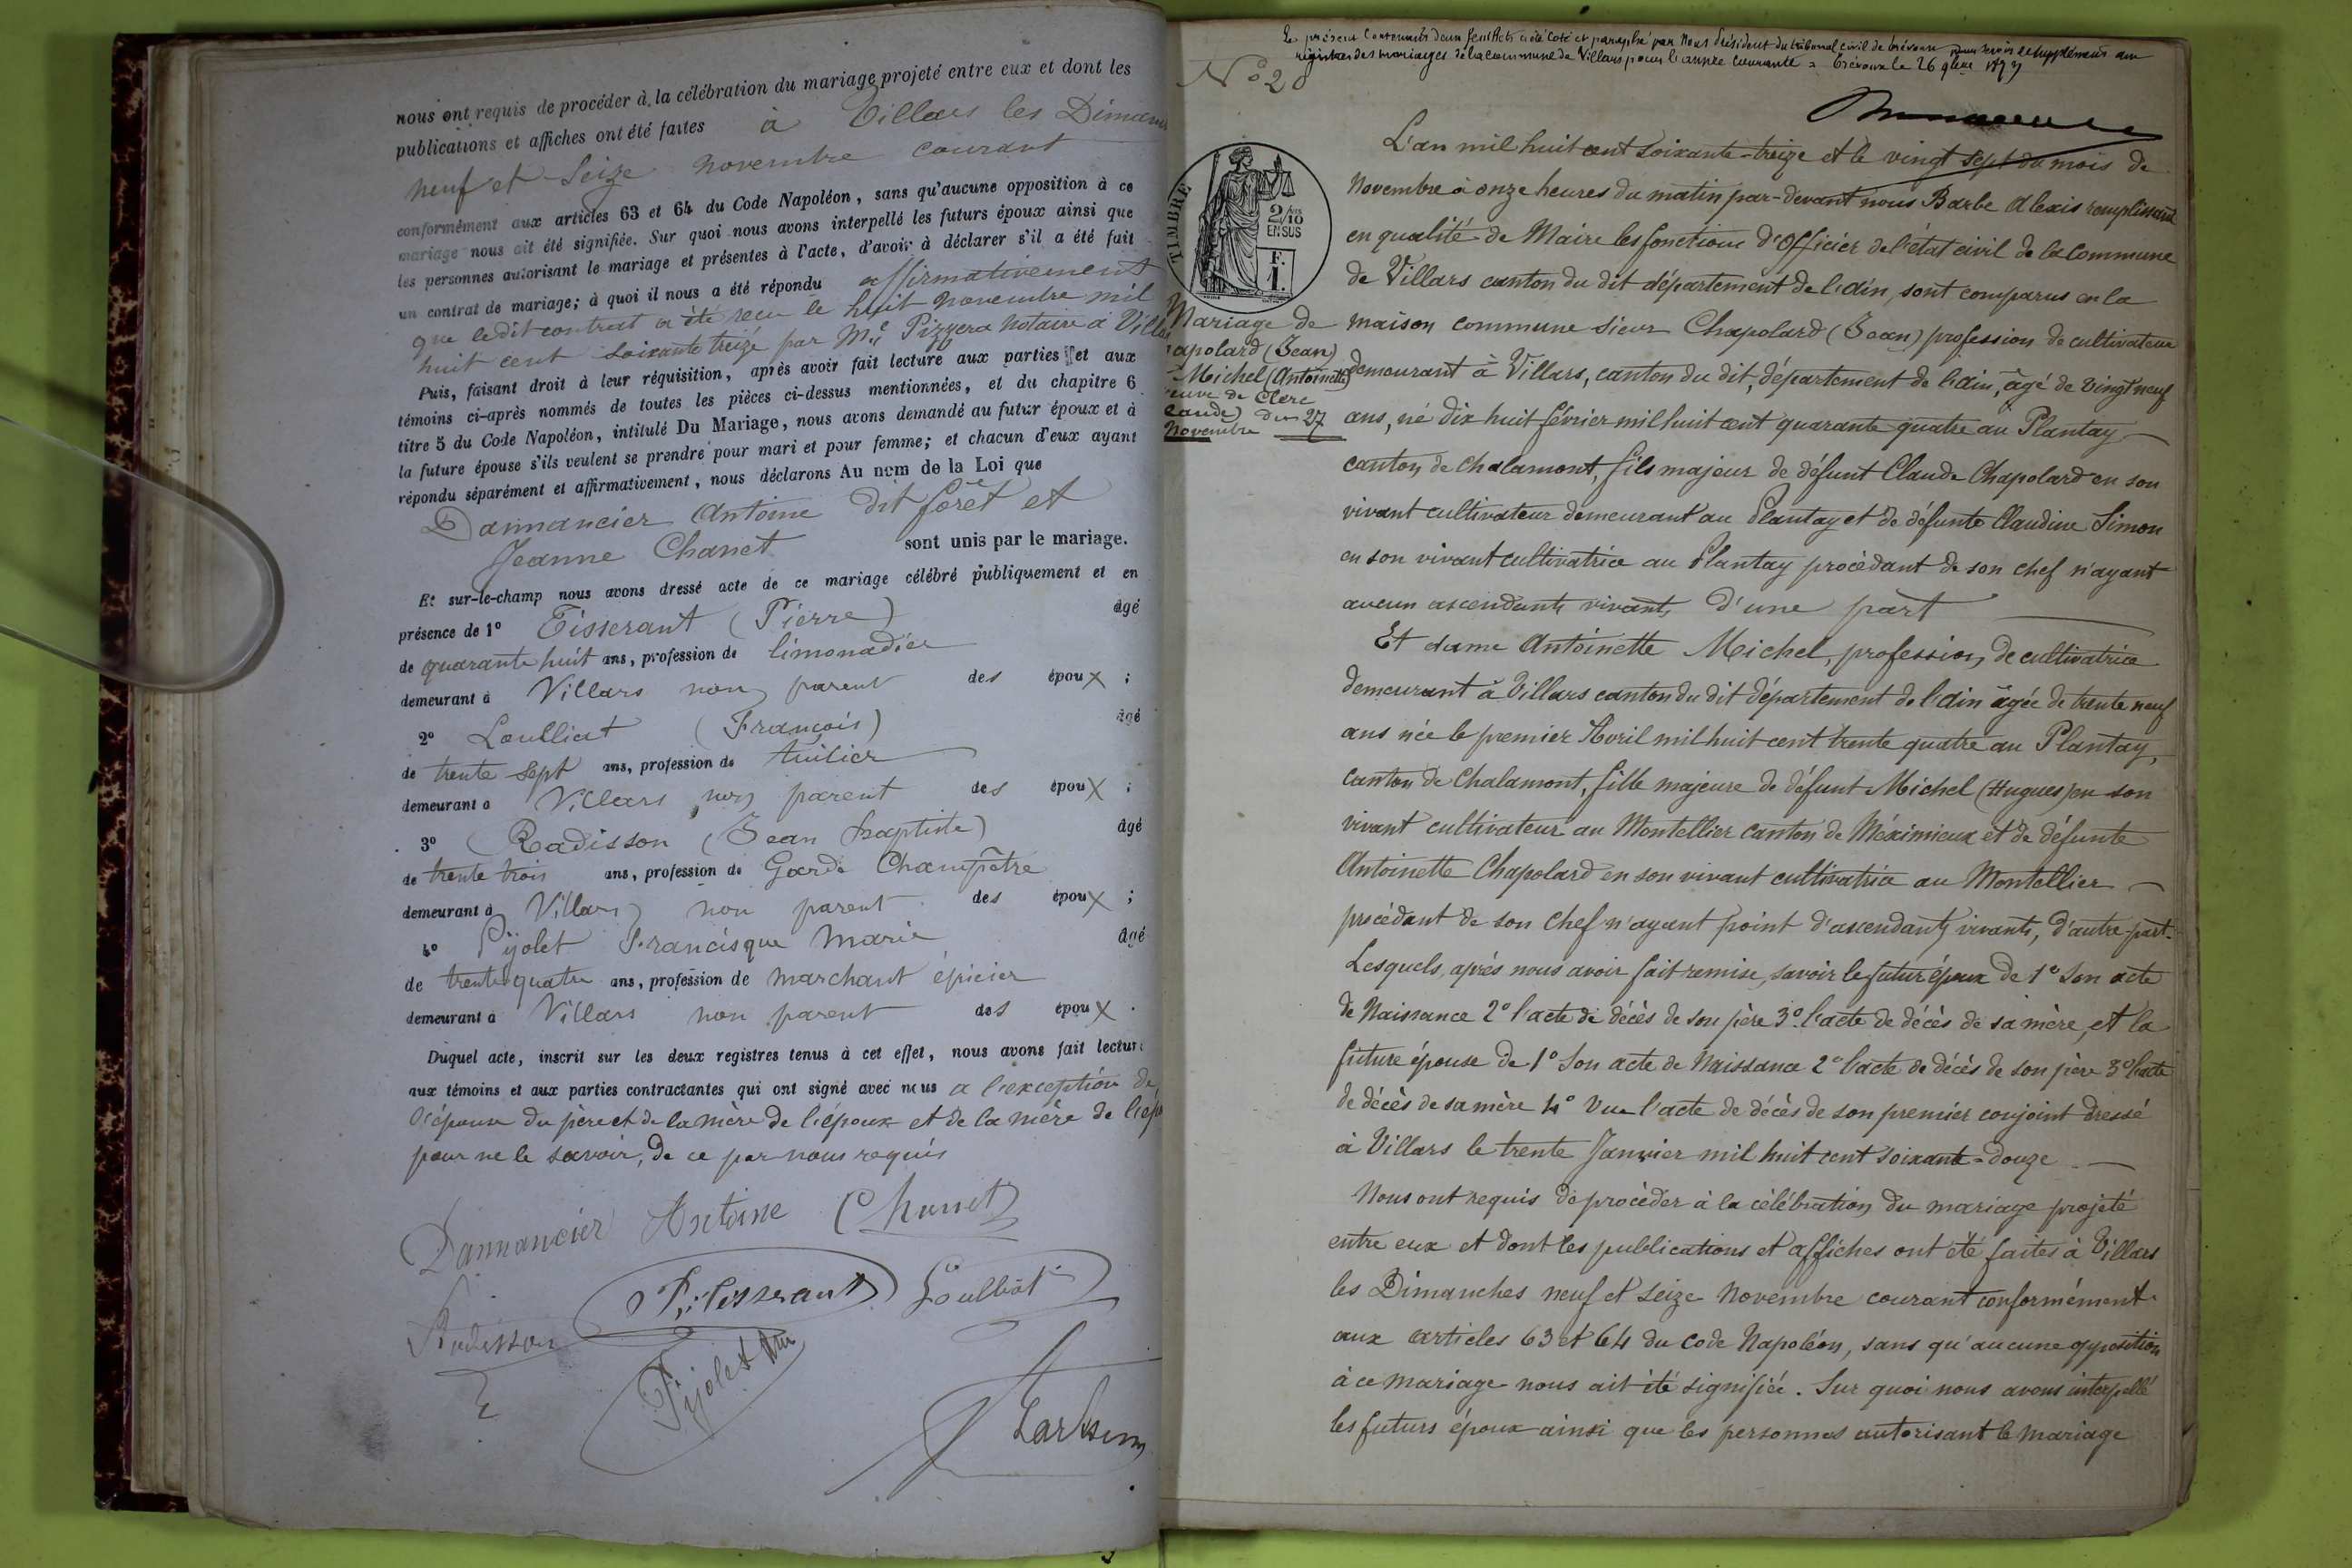 nous ont requis de procéder à la célébration du mariage projeté entre eux et dont les
publications et affiches ont été faites à Villars les
neuf et Seize novembre courant
conformément aux articles 63 et 64 du Code Napoléon, sans qu'aucune opposition à ce
mariage nous ait été signifiée. Sur quoi nous avons interpellé les futurs époux ainsi que
les personnes autorisant le mariage et présentes à l'acte, d'avoir à déclarer s'il a été fait
un contrat de mariage; à quoi il nous a été répondu affirmativement
que le dit contrat a été recu le huit novembre mil
huit cent soixante treize par Me Pizzera notaire à
Puis, faisant droit à leur réquisition, après avoir fait lecture aux parties et aux
témoins ci-après nommés de toutes les pièces ci-dessus mentionnées, et du chapitre 6
titre 5 du Code Napoléon, intitulé Du Mariage, nous avons demandé au futur époux et à
la future épouse s'ils veulent se prendre pour mari et pour femme; et chacun d'eux ayant
répondu séparément et affirmativement, nous déclarons Au nom de la Loi que
Dannancier Antoine dit forêt et
Jeanne Chanet sont unis par le mariage.
Et sur-le-champ nous avons dressé acte de ce mariage célébré publiquement et en
présence de 1° Tisserant (Pierre) âgé
de quarante huit ans, profession de limonadier
demeurant à Villars non parent des époux ;
2° Loulliat (François) âgé
de trente sept ans, profession de tuilier
demeurant à Villars non parent des époux ;
3° Radisson (Jean Baptiste) âgé
de trente trois ans, profession de Garde Champêtre
demeurant à Villars non parent des époux ;
4° Pijolet Francisque Marie âgé
de trente quatre ans, profession de marchant épicier
demeurant à Villars non parent des époux .
Duquel acte, inscrit sur les deux registres tenus à cet effet, nous avons fait lecture
aux témoins et aux parties contractantes qui ont signé avec nous a l'exception de
l'épouse du père et de la mère de l'époux et de la mère de
pour ne le savoir, de ce par nous requis
Dannancier Antoine Chanet
P. Tisserant Loulliat
Radisson
Pijolet
Le présent contenant deux feuillets a été coté et paraphé par Nous Président du tribunal civil de trévoux pour servir de supplément au
registre des mariages de la commune de Villars pour l'année courante = Trévoux le 26 9bre 1873
N° 20
L'an mil huit cent soixante-treize et le vingt sept du mois de
Novembre à onze heures du matin par-devant nous Barbe Alexis remplissant
en qualité de Maire les fonctions d'Officier de l'état civil de la Commune
de Villars canton du dit département de l'ain, sont comparus en la
maison commune sieur Chapolard (Jean) profession de cultivateur
demeurant à Villars, canton du dit, département de l'ain, âgé de vingt neuf
ans, né dix huit février mil huit cent quarante quatre au Plantay
canton de Chalamont, fils majeur de défunt Claude Chapolard en son
vivant cultivateur demeurant au Plantay et de défunte Claudine Simon
en son vivant cultivatrice au Plantay procédant de son chef n'ayant
aucun ascendants vivants d'une part
Et dame Antoinette Michel, profession de cultivatrice
demeurant à Villars canton du dit département de l'ain âgée de trente neuf
ans née le premier Avril mil huit cent trente quatre au Plantay,
canton de Chalamont, fille majeure de défunt Michel (Hugues) en son
vivant cultivateur au Montellier canton de Méximieux et de défunte
Antoinette Chapolard en son vivant cultivatrice au Montellier
procédant de son chef n'ayant point d'ascendants vivants, d'autre part.
Lesquels, après nous avoir fait remise, savoir le futur époux de 1° Son acte
de Naissance 2° l'acte de décès de son père 3° l'acte de décès de sa mère, et la
future épouse de 1° Son acte de Naissance 2° l'acte de décès de son père 3° l'acte
de décès de sa mère 4° Vu l'acte de décès de son premier conjoint dressé
à Villars le trente Janvier mil huit cent soixante-douze
Nous ont requis de procéder à la célébration du mariage projeté
entre eux et dont les publications et affiches ont été faites à Villars
les Dimanches neuf et Seize Novembre courant conformément
aux articles 63 et 64 du Code Napoléon, sans qu'aucune opposition
à ce mariage nous ait été signifiée. Sur quoi nous avons interpellé
les futurs époux ainsi que les personnes autorisant le mariage
TIMBRE
2/10
EN SUS
F.
1.
Mariage de
apolard (Jean)
Michel (Antoinette)
euve de Clerc
laude) du 27
Novembre